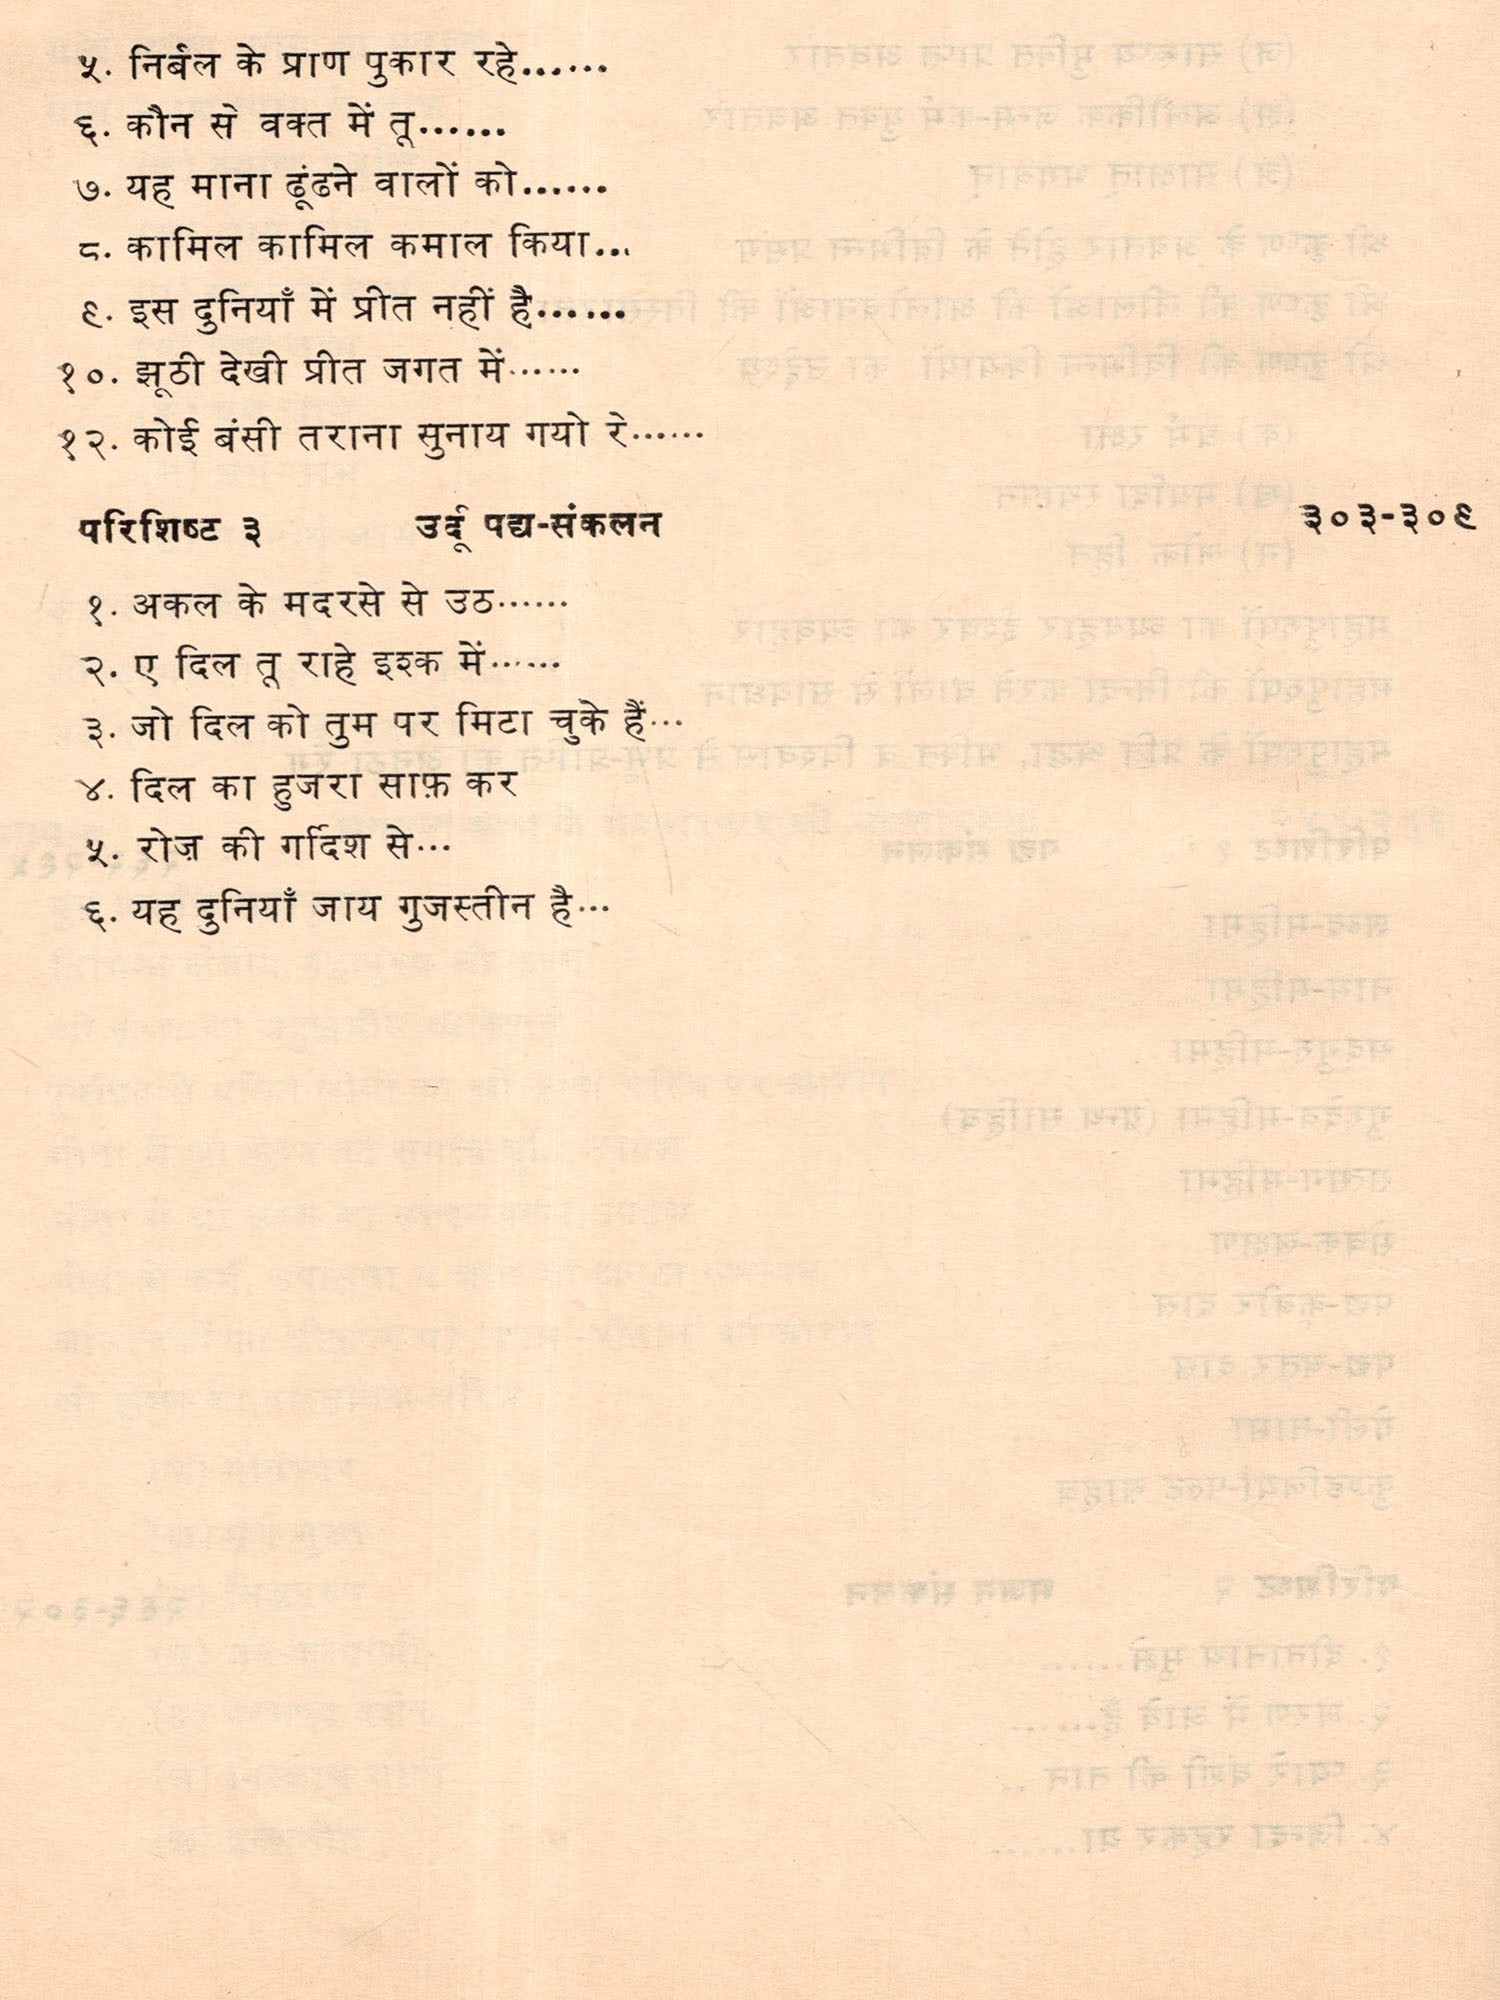 ५. निर्बल के प्राण पुकार रहे......
६. कौन से वक्त में तू......
७. यह माना ढूंढने वालों को......
८. कामिल कामिल कमाल किया...
९. इस दुनियाँ में प्रीत नहीं है......
१०. झूठी देखी प्रीत जगत में......
१२. कोई बंसी तराना सुनाय गयो रे......
परिशिष्ट ३ उर्दू पद्य-संकलन ३०३-३०९
१. अकल के मदरसे से उठ......
२. ए दिल तू राहे इश्क में......
३. जो दिल को तुम पर मिटा चुके हैं...
४. दिल का हुजरा साफ़ कर
५. रोज़ की गर्दिश से...
६. यह दुनियाँ जाय गुजस्तीन है...